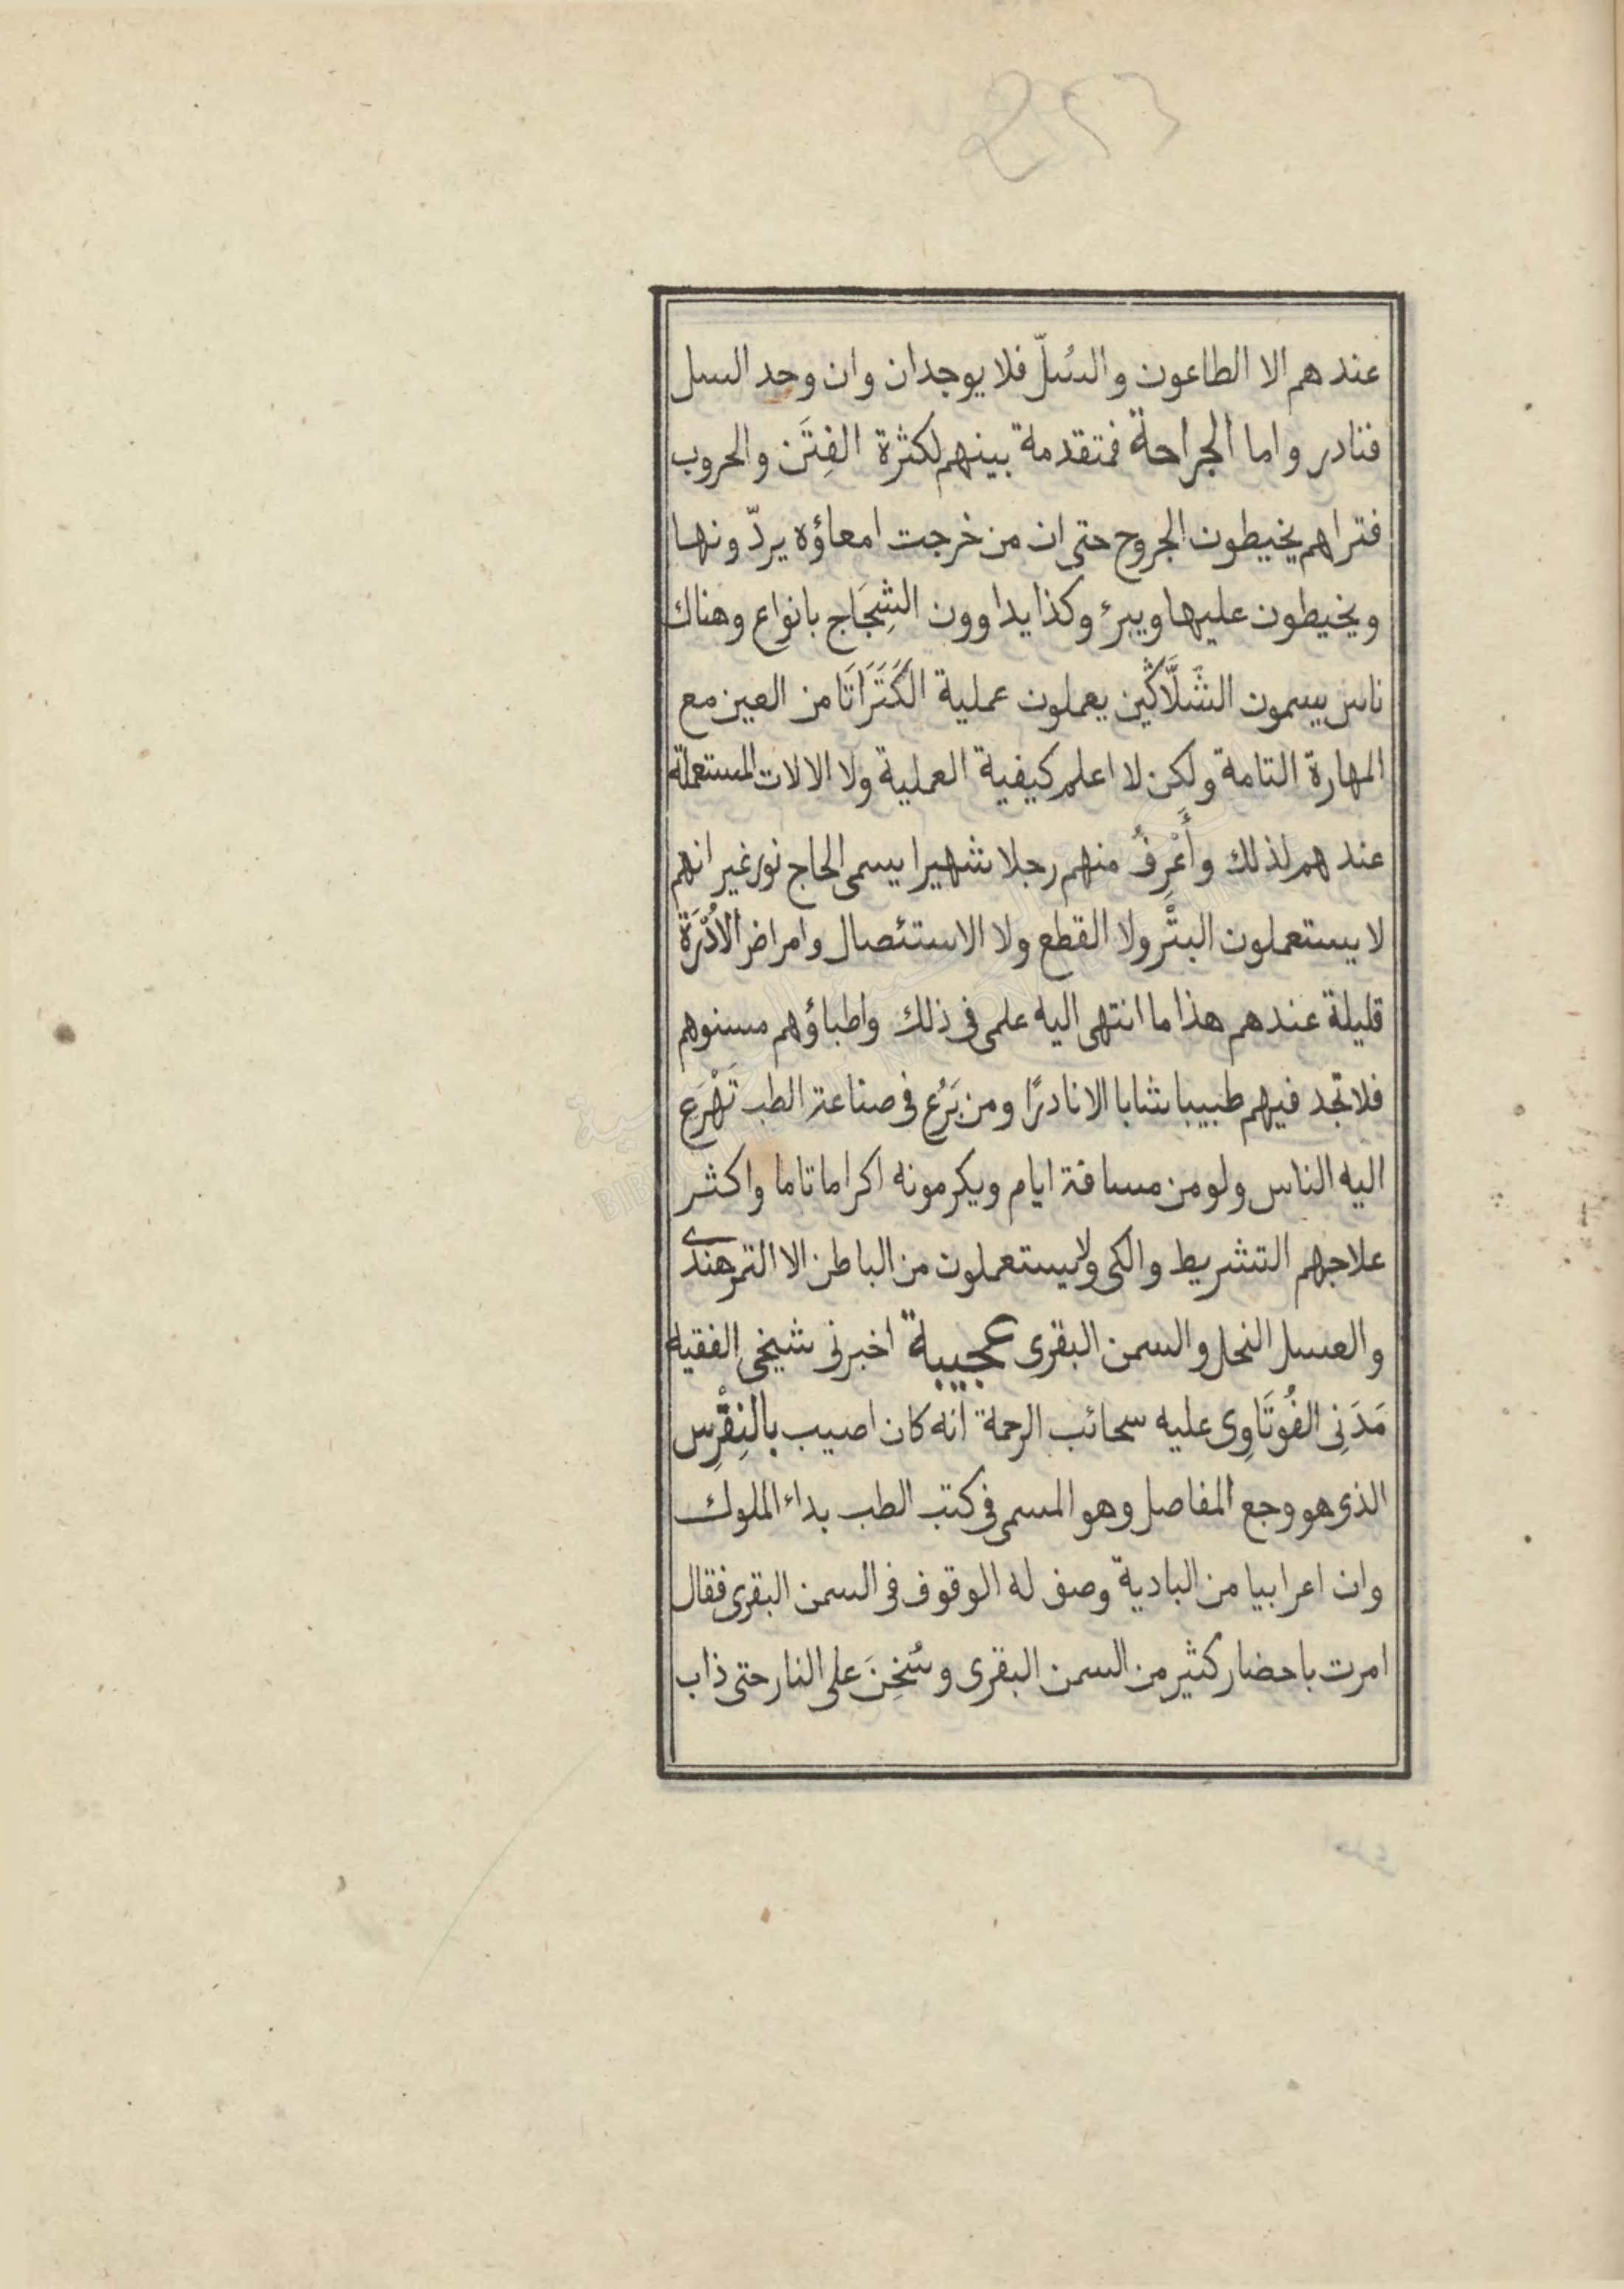 عندهم الا الطاعون والسُلّ فلا يوجدان وان وجد السل
فنادر واما الجراحة فمتقدمة بينهم لكثرة الفِتَن والحروب
فتراهم يخيطون الجروح حتى ان من خرجت امعاؤه يردّونها
ويخيطون عليها ويبرء وكذا يداوون الشِجَاج بانواع وهناك
ناس يسمون الشَلَّاكْين يعملون عملية الكَتَرَاتَا من العين مع
المهارة التامة ولكن لا اعلم كيفية العملية ولا الالات المستعملة
عندهم لذلك وأَعْرِفُ منهم رجلا شهيرا يسمى الحاج نور غير انهم
لا يستعملون البتْر ولا القطع ولا الاستئصال وامراض الاُدْرَة
قليلة عندهم هذا ما انتهى اليه علمى فى ذلك واطباؤهم مسنوهم
فلا تجد فيهم طبيبا شابا الا نادرًا ومن بَرُع فى صناعة الطب تَهْرَع
اليه الناس ولو من مسافة ايام ويكرمونه اكراما تاما واكثر
علاجهم التشريط والكى ولا يستعملون من الباطن الا التمر هندى
والعسل النحل والسمن البقرى عجيبة اخبرنى شيخى الفقيه
مَدَنِى الفُوتَاوِى عليه سحائب الرحمة انه كان اصيب بالنِقْرِس
الذى هو وجع المفاصل وهو المسمى فى كتب الطب بداء الملوك
وان اعرابيا من البادية وصف له الوقوف فى السمن البقرى فقال
امرت باحضار كثير من السمن البقرى وسُخِنَ على النار حتى ذاب